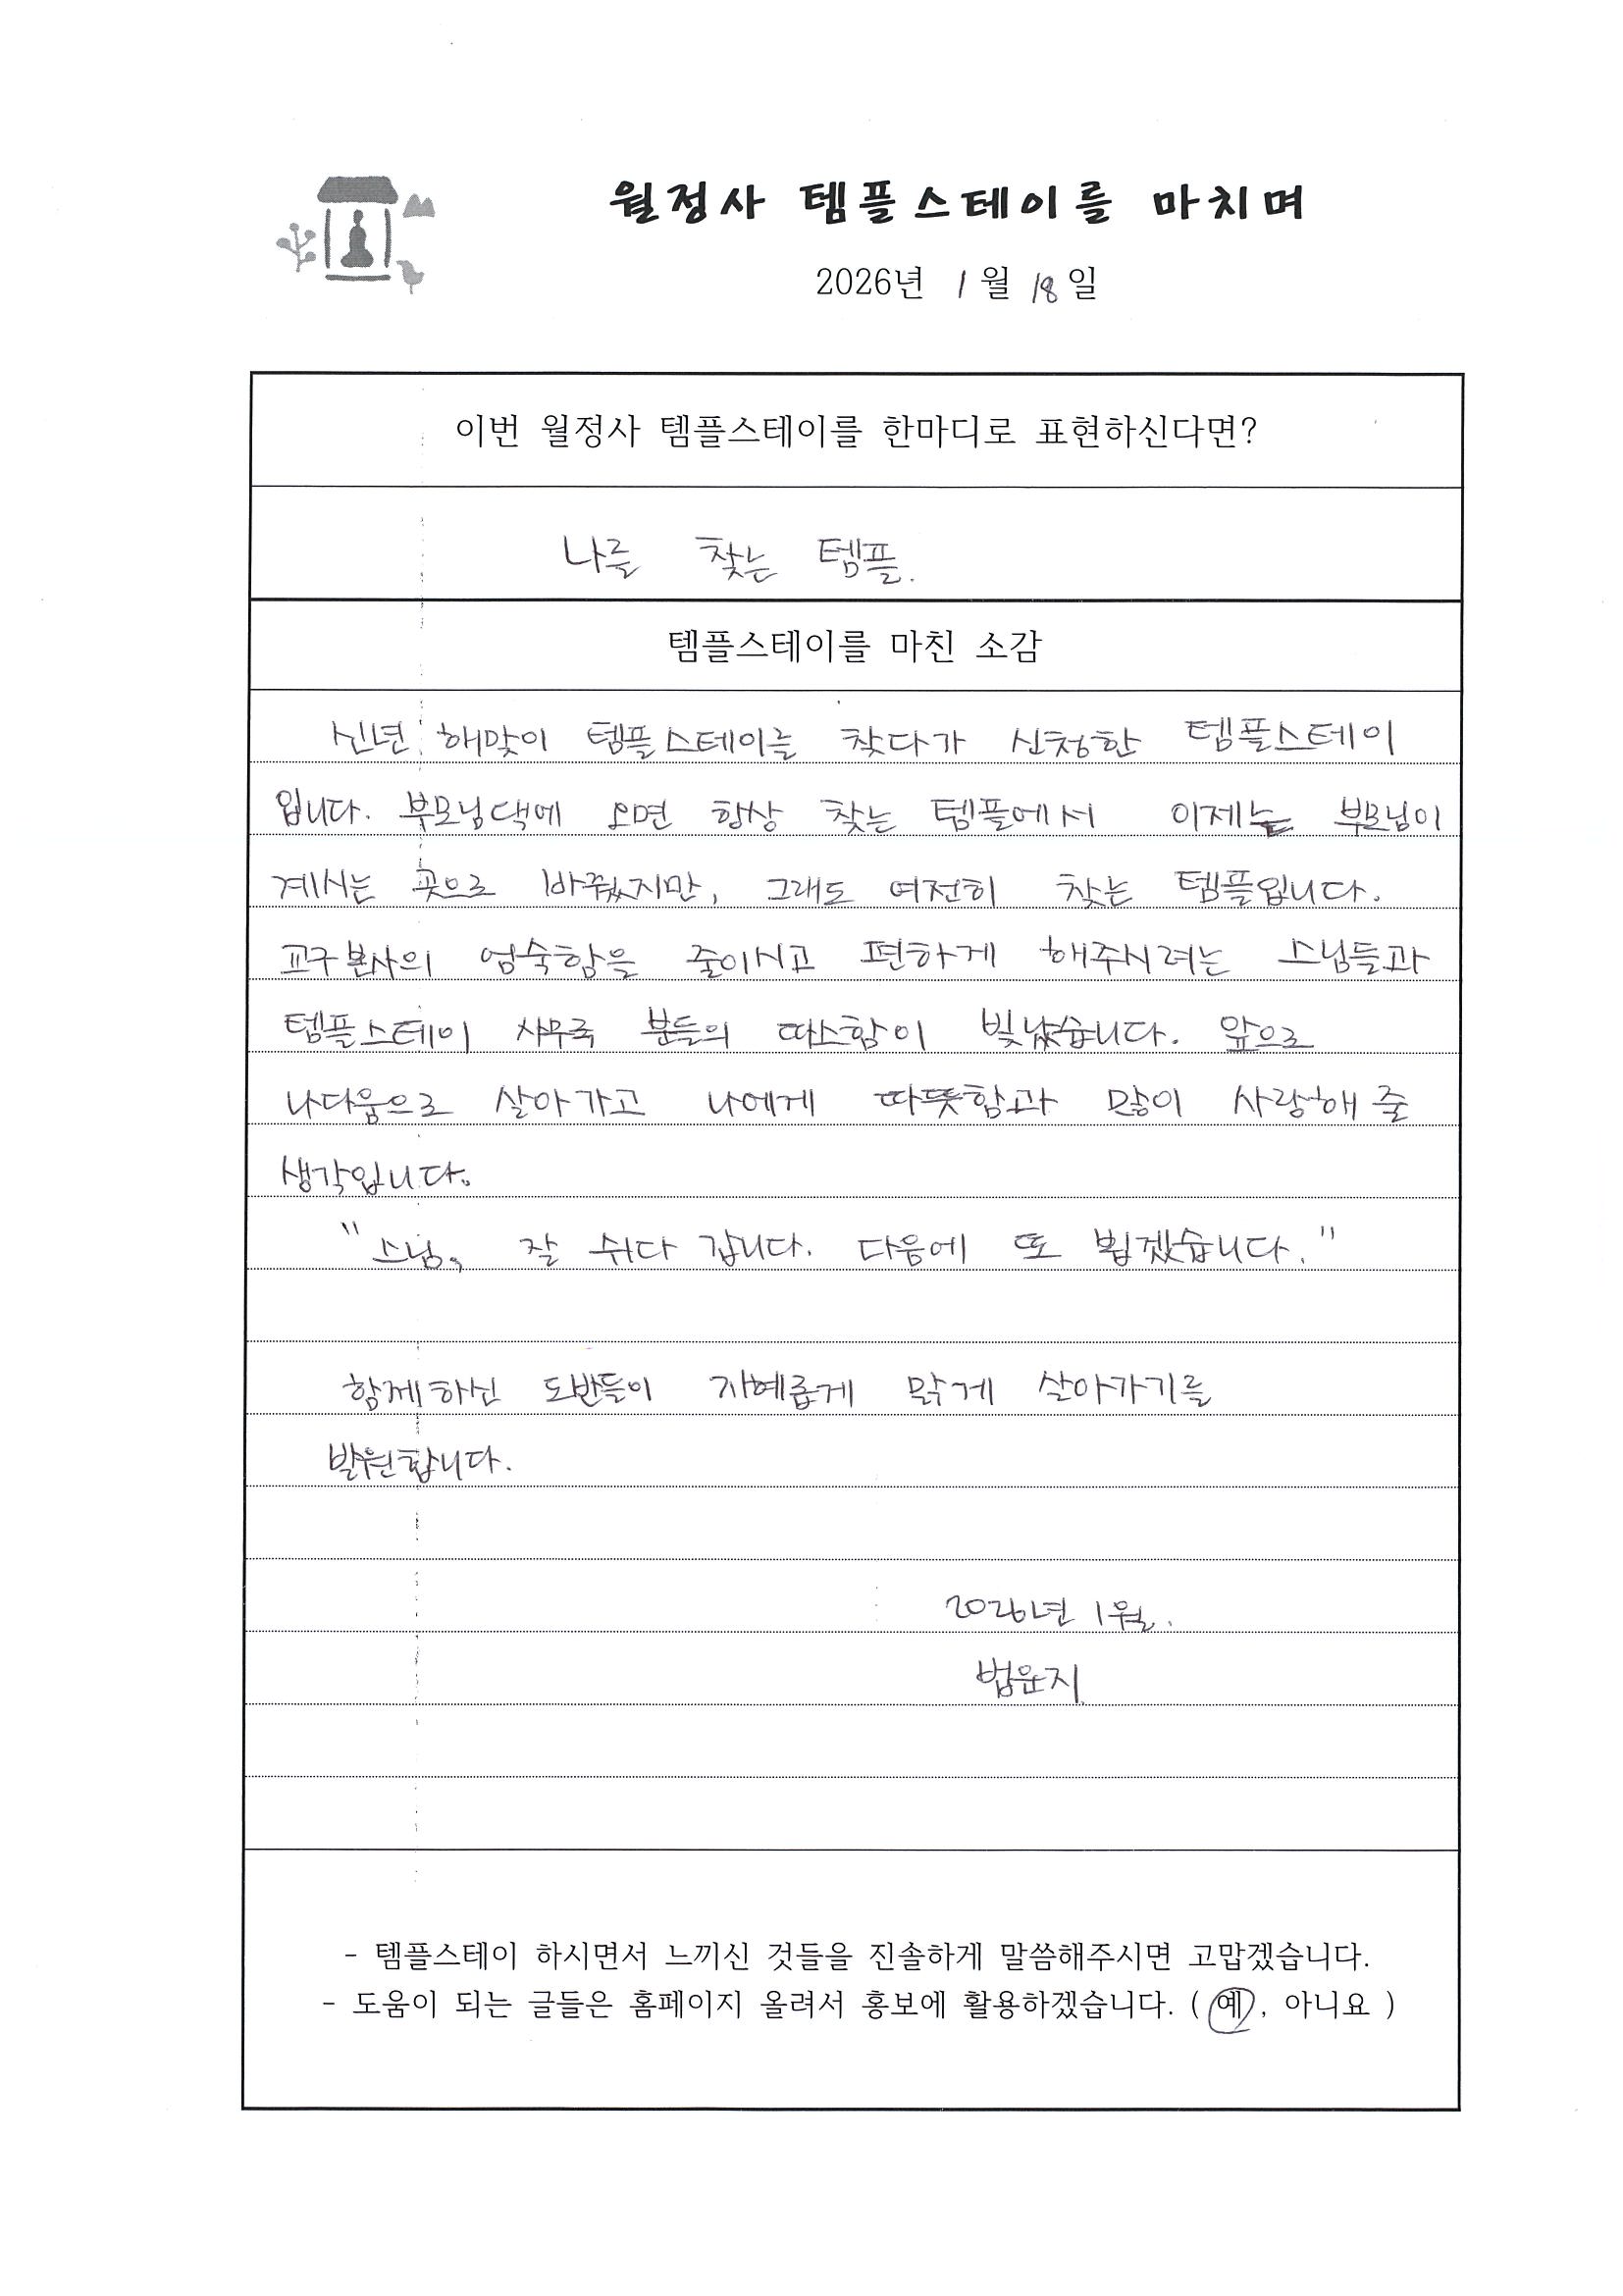 월정사 템플스테이를 마치며
2026년 1월 18일
이번 월정사 템플스테이를 한마디로 표현하신다면?
나를 찾는 템플.
템플스테이를 마친 소감
신년 해맞이 템플스테이를 찾다가 신청한 템플스테이
입니다. 부모님댁에 오면 항상 찾는 템플에서 이제는 부모님이
계시는 곳으로 바꿨지만, 그래도 여전히 찾는 템플입니다.
교구본사의 엄숙함을 줄이시고 편하게 해주시려는 스님들과
템플스테이 사무국 분들의 따스함이 빛났습니다. 앞으로
나다움으로 살아가고 나에게 따뜻함과 많이 사랑해 줄
생각입니다.
"스님, 잘 쉬다 갑니다. 다음에 또 뵙겠습니다."
함께하신 도반들이 지혜롭게 맑게 살아가기를
발원합니다.
2026년 1월.
법윤지
- 템플스테이 하시면서 느끼신 것들을 진솔하게 말씀해주시면 고맙겠습니다.
- 도움이 되는 글들은 홈페이지 올려서 홍보에 활용하겠습니다. ( 예, 아니요 )